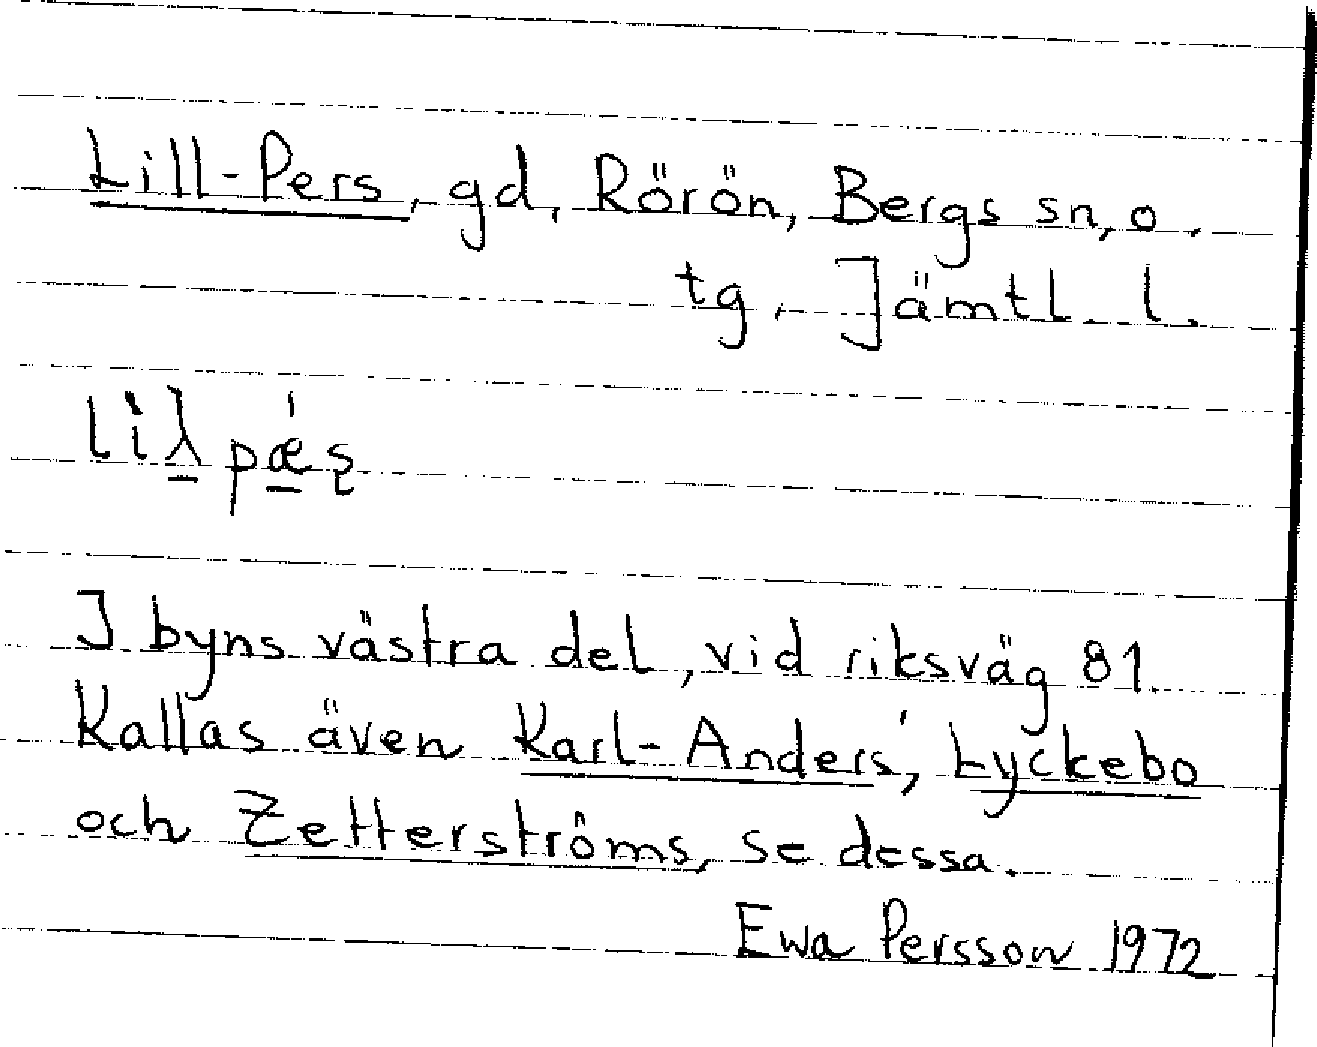 Lill-Pers, gd, Rörön, Bergs sn, o.
tg, Jämtl. l.
lìλ̱ pǽ̱ʂ
I byns västra del, vid riksväg 81.
Kallas även Karl-Anders', Lyckebo
och Zetterströms, se dessa.
Ewa Persson 1972